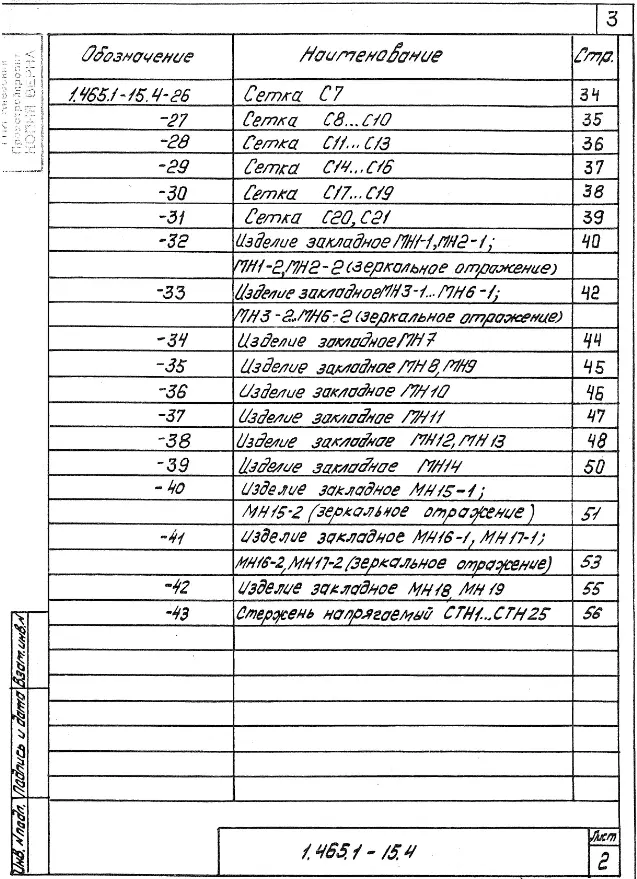 3
Обозначение Наименование Стр.
1.465.1-15.4-26 Сетка С7 34
-27 Сетка С8...С10 35
-28 Сетка С11...С13 36
-29 Сетка С14...С16 37
-30 Сетка С17...С19 38
-31 Сетка С20, С21 39
-32 Изделие закладное МН1-1, МН2-1; 40
МН1-2, МН2-2 (зеркальное отражение)
-33 Изделие закладное МН3-1...МН6-1; 42
МН3-2...МН6-2 (зеркальное отражение)
-34 Изделие закладное МН7 44
-35 Изделие закладное МН8, МН9 45
-36 Изделие закладное МН10 46
-37 Изделие закладное МН11 47
-38 Изделие закладное МН12, МН13 48
-39 Изделие закладное МН14 50
-40 Изделие закладное МН15-1;
МН15-2 (зеркальное отражение) 51
-41 Изделие закладное МН16-1, МН17-1;
МН16-2, МН17-2 (зеркальное отражение) 53
-42 Изделие закладное МН18, МН19 55
-43 Стержень напрягаемый СТН1...СТН25 56
КОПИЯ ВЕРНА
Инв. № подл. Подпись и дата Взам. инв. №
1.465.1-15.4
Лист
2